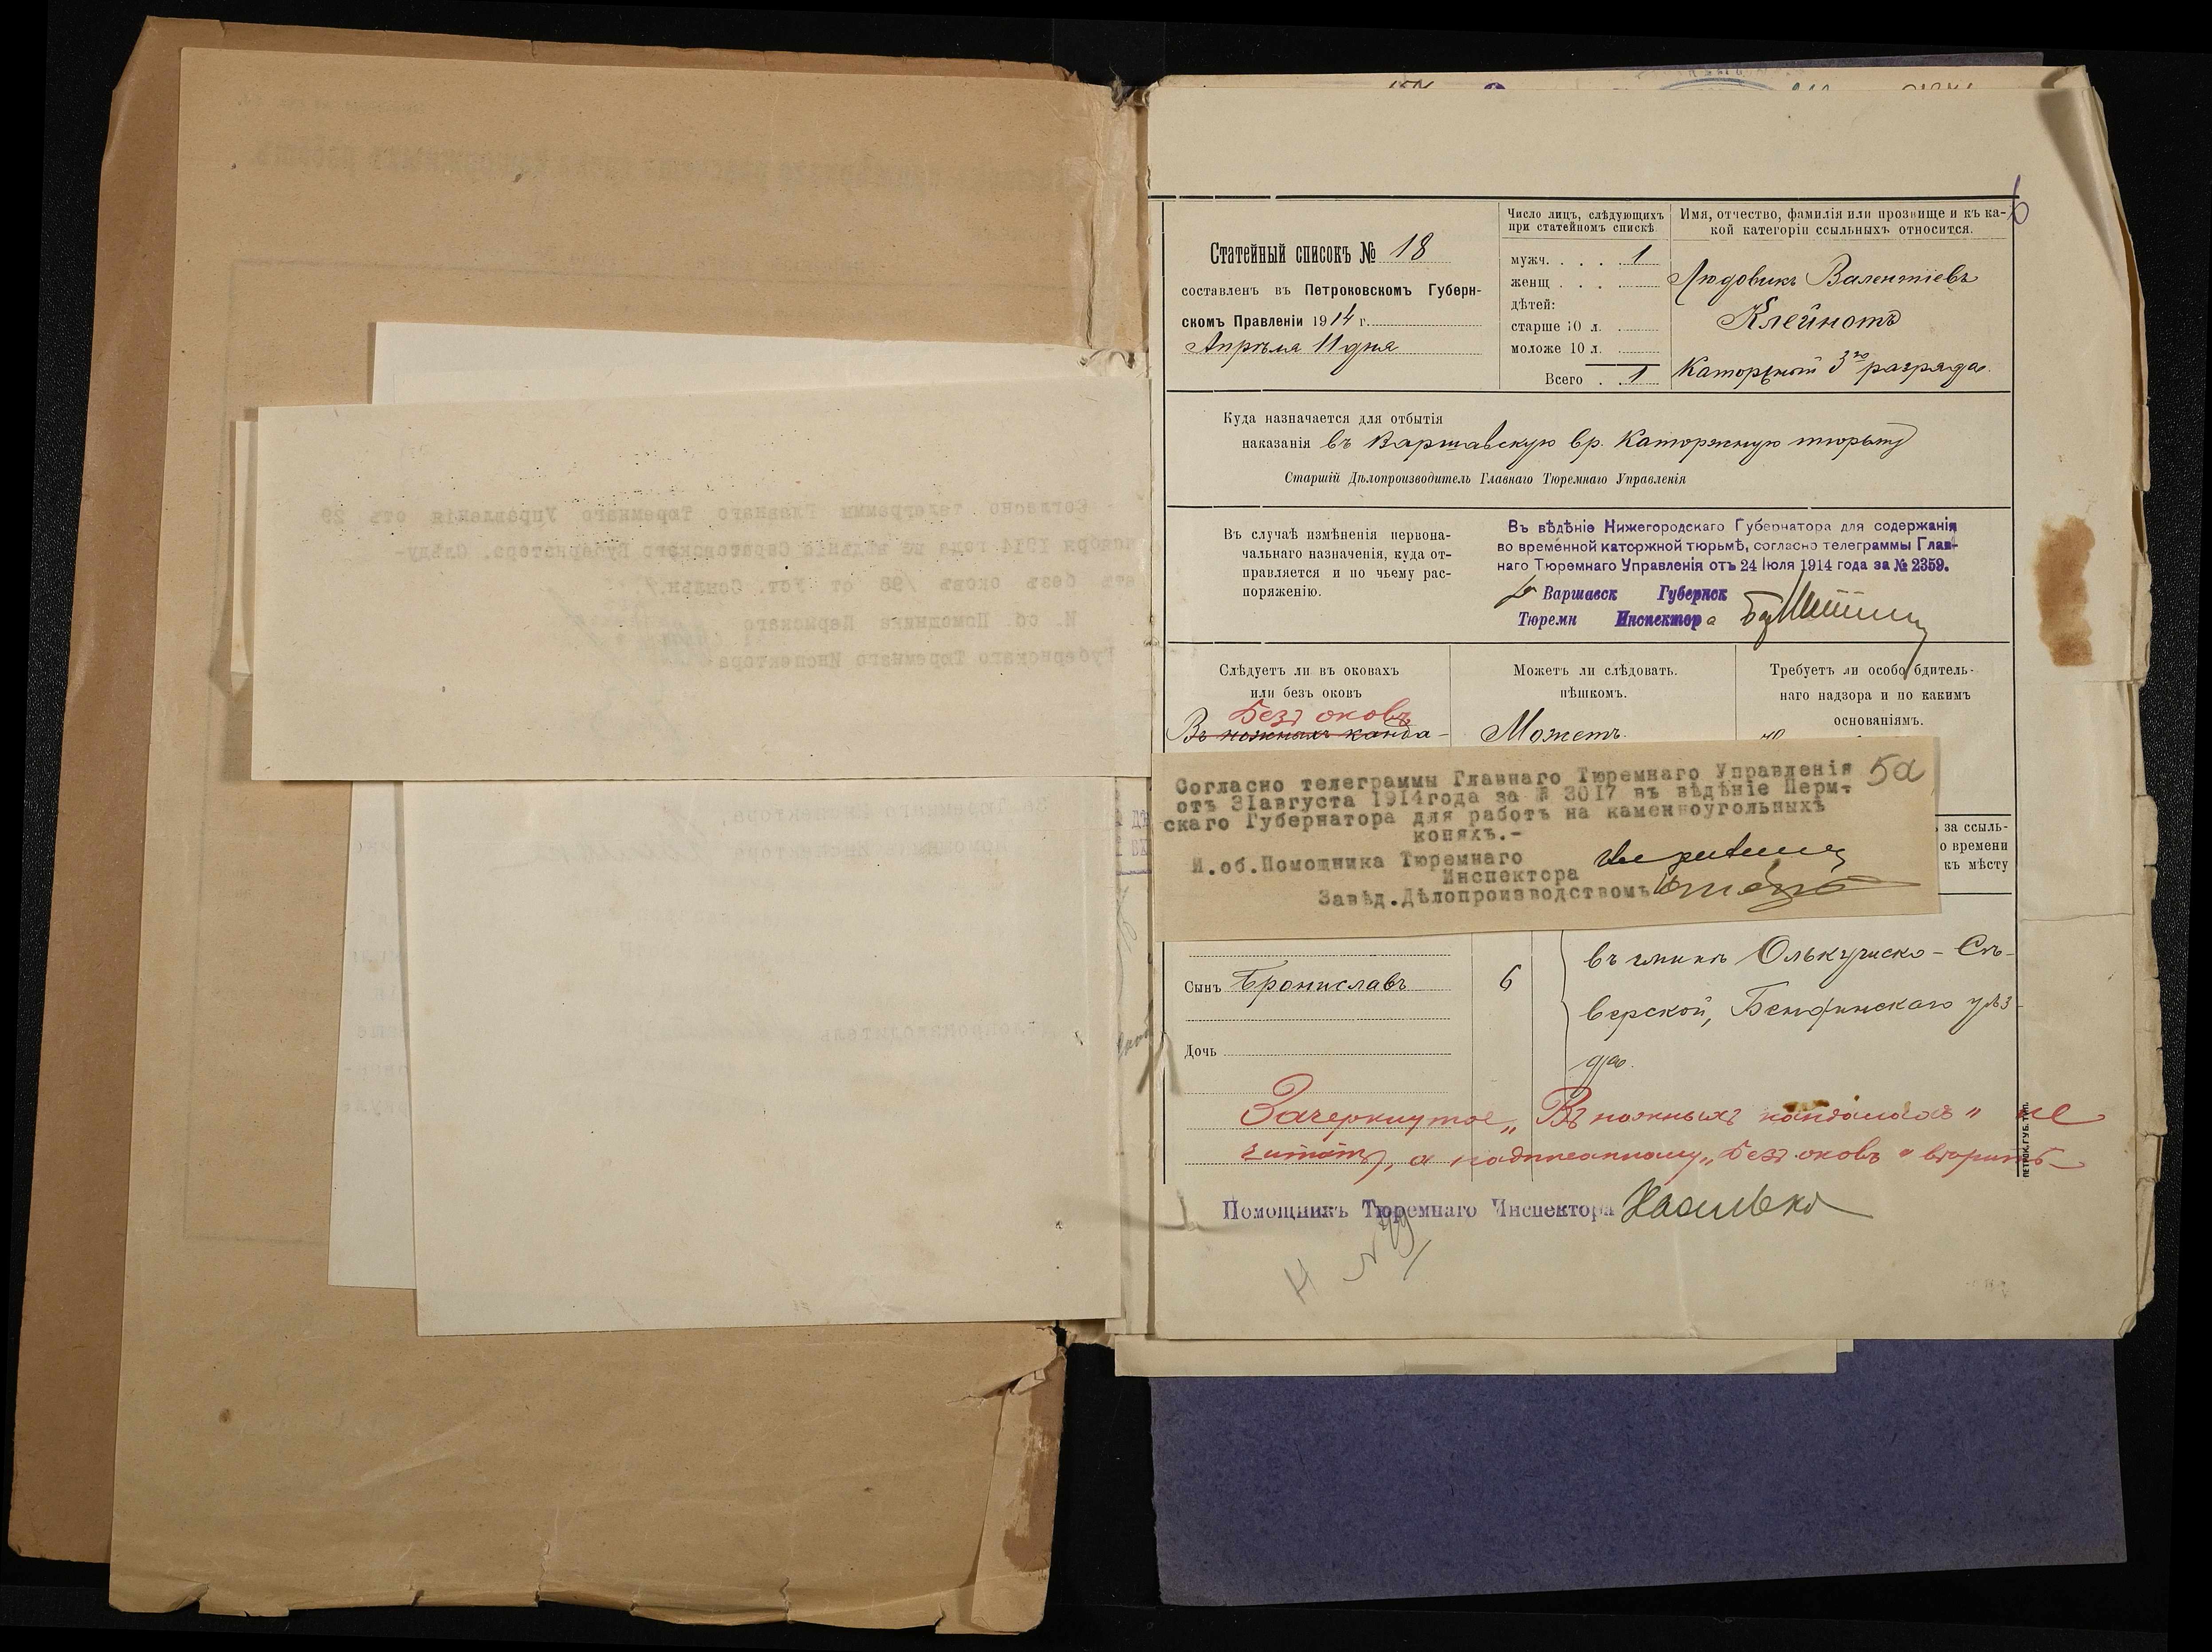 6
Статейный списокъ № 18
составленъ въ Петроковскомъ Губерн-
скомъ Правленіи 1914 г.
Апрѣля 11 дня
Число лицъ, слѣдующихъ
при статейномъ спискѣ
мужч. . . . . 1
женщ . . . .
дѣтей:
старше 10 л.
моложе 10 л.
Всего . . 1
Имя, отчество, фамилія или прозвище и къ ка-
кой категоріи ссыльныхъ относится.
Людовикъ Валентіевъ
Клейнотъ
Каторжный 3го разряда.
Куда назначается для отбытія
наказанія въ Варшавскую вр. Каторжную тюрьму
Старшій Дѣлопроизводитель Главнаго Тюремнаго Управленія
Въ случаѣ измѣненія первона-
чальнаго назначенія, куда от-
правляется и по чьему рас-
поряженію.
Въ вѣдѣніе Нижегородскаго Губернатора для содержанія
во временной каторжной тюрьмѣ, согласно телеграммы Глав-
наго Тюремнаго Управленія отъ 24 Іюля 1914 года за № 2359.
Варшавск Губернск
Тюремн Инспектора
Слѣдуетъ ли въ оковахъ
или безъ оковъ
Безъ оковъ
Въ ножныхъ канда-
Можетъ ли слѣдовать.
пѣшкомъ.
Можетъ.
Требуетъ ли особо бдитель-
наго надзора и по какимъ
основаніямъ.
Согласно телеграммы Главнаго Тюремнаго Управленія 5а
отъ 31августа 1914года за № 3017 въ вѣдѣніе Перм-
скаго Губернатора для работъ на каменноугольныхъ
копяхъ.-
И.об.Помощника Тюремнаго
Инспектора
Завѣд.Дѣлопроизводствомъ
за ссыль-
о времени
къ мѣсту
Сынъ Брониславъ 6
Дочь
въ гминѣ Олькушско-Сѣ-
верской, Бендинскаго уѣз-
да.
Зачеркнутое „Въ ножныхъ кандалахъ" не
читать, а надписанному „Безъ оковъ" вѣрить
Помощникъ Тюремнаго Инспектора
ПЕТРОК. ГУБ. ТИП.
Согласно телеграммы Главнаго Тюремнаго Управленія отъ 29
ноября 1914 года въ вѣдѣніе Саратовскаго Губернатора. Слѣду-
етъ безъ оковъ /98 ст Уст. Ссыльн./.
И. об Помощника Пермскаго
Губернскаго Тюремнаго Инспектора